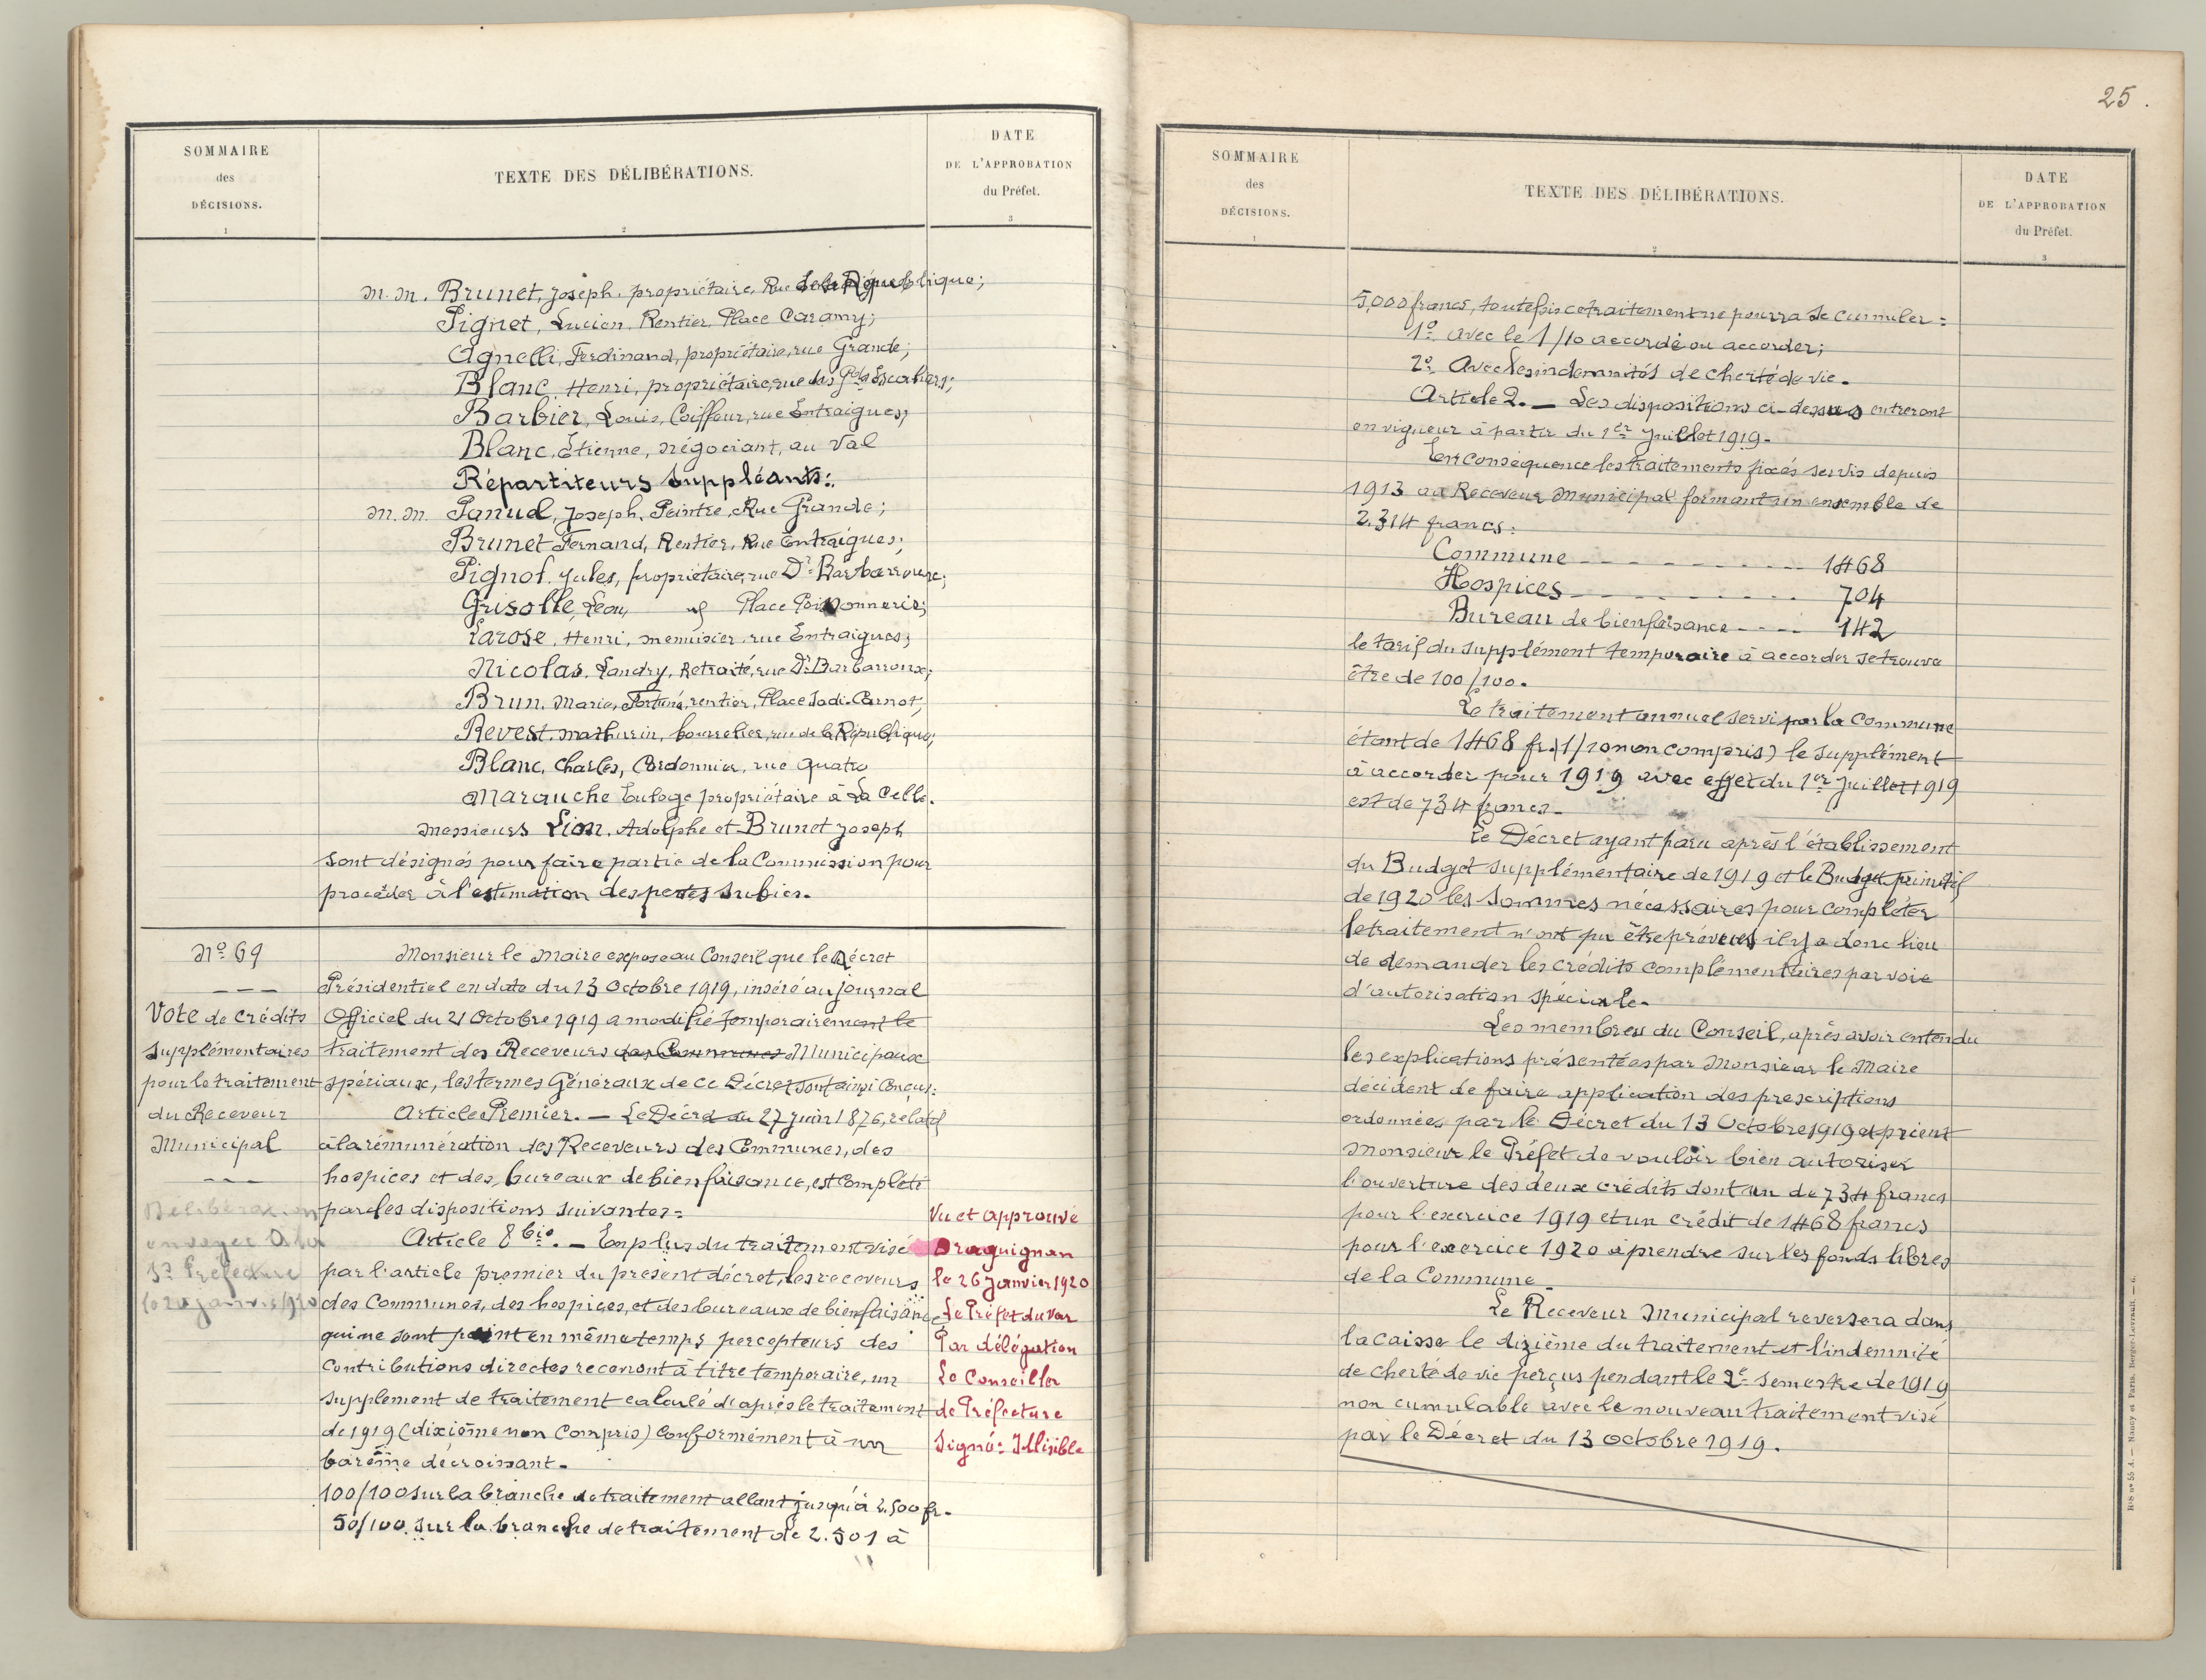 SOMMAIRE
des
DÉCISIONS.
1
TEXTE DES DÉLIBÉRATIONS.
2
DATE
DE L'APPROBATION
du Préfet.
3
M.M. Brunet, Joseph, propriétaire, Rue de la République;
Pignet, Lucien, Rentier, Place Caramy;
Agnelli, Ferdinand, propriétaire, rue Grande;
Blanc, Henri, propriétaire, rue des Gds Escaliers;
Barbier, Louis, Coiffeur, rue Entraigues;
Blanc, Etienne, négociant, au Val
Répartiteurs Suppléants:
M.M. Panud, Joseph, Peintre, Rue Grande;
Brunet Fernand, Rentier, Rue Entraigues;
Pignol, Jules, propriétaire, rue Dr Barbarroux;
Grisolle, Léon, Place Poissonnerie;
Larose, Henri, menuisier, rue Entraigues;
Nicolas, Landry, Retraité, rue Dr Barbarroux;
Brun, Marie, Fortuné, rentier, Place Sadi-Carnot;
Revest, Mathurin, bourrelier, rue de la République;
Blanc, Charles, Cordonnier, rue Quatro
Marauche Euloge propriétaire à La Celle.
Messieurs Lion, Adolphe et Brunet Joseph
sont désignés pour faire partie de la Commission pour
procéder à l'estimation des pertes subies.
No 69
Vote de crédits
supplémentaires
pour le traitement
du Receveur
Municipal
Délibération
envoyée à la
Se Préfecture
le 20 janvier 1920
Monsieur le Maire expose au Conseil que le Décret
Présidentiel en date du 13 Octobre 1919, inséré au journal
Officiel du 21 Octobre 1919 a modifié temporairement le
traitement des Receveurs des Communes Municipaux
spéciaux, les termes Généraux de ce Décret sont ainsi Conçus:
Article Premier. — Le Décret du 27 juin 1876, relatif
à la rémunération des Receveurs des Communes, des
hospices et des bureaux de bienfaisance, est Complété
par les dispositions suivantes:
Article 8 bis. — En plus du traitement visé
par l'article premier du présent décret, les receveurs
des Communes, des hospices, et des bureaux de bienfaisance
qui ne sont point en même temps percepteurs des
Contributions directes recevront à titre temporaire, un
supplément de traitement calculé d'après le traitement
de 1919 (dixième non Compris) Conformément à un
barème décroissant.
100/100 sur la branche de traitement allant jusqu'à 2.500 fr.
50/100 sur la branche de traitement de 2.501 à
Vu et approuvé
Draguignan
le 26 Janvier 1920
Le Préfet du Var
Par délégation
Le Conseiller
de Préfecture
Signé: Illisible
25.
SOMMAIRE
des
DÉCISIONS.
1
TEXTE DES DÉLIBÉRATIONS.
2
DATE
DE L'APPROBATION
du Préfet.
3
5,000 francs, toutefois ce traitement ne pourra se cumuler:
1o avec le 1/10 accordé ou accorder;
2o Avec les indemnités de cherté de vie.
Article 2. — Les dispositions ci-dessus entreront
en vigueur à partir du 1er Juillet 1919.
En conséquence les traitements fixés servis depuis
1913 au Receveur Municipal formant un ensemble de
2.314 francs:
Commune ---------- 1468
Hospices ---------- 704
Bureau de bienfaisance ---- 142
le tarif du supplément temporaire à accorder se trouve
être de 100/100.
Le traitement annuel servi par la Commune
étant de 1468 fr. (1/10 non compris) le supplément
à accorder pour 1919 avec effet du 1er Juillet 1919
est de 734 francs.
Le Décret ayant paru après l'établissement
du Budget supplémentaire de 1919 et le Budget primitif
de 1920 les sommes nécessaires pour compléter
le traitement n'ont pu être prévues il y a donc lieu
de demander les crédits complémentaires par voie
d'autorisation spéciale.
Les membres du Conseil, après avoir entendu
les explications présentées par Monsieur le Maire
décident de faire application des prescriptions
ordonnées par le Décret du 13 Octobre 1919 et prient
Monsieur le Préfet de vouloir bien autoriser
l'ouverture des deux crédits dont un de 734 francs
pour l'exercice 1919 et un crédit de 1468 francs
pour l'exercice 1920 à prendre sur les fonds libres
de la Commune.
Le Receveur Municipal reversera dans
la caisse le dizième du traitement et l'indemnité
de cherté de vie perçus pendant le 2e semestre de 1919
non cumulable avec le nouveau traitement visé
par le Décret du 13 octobre 1919.
Nancy et Paris, Berger-Levrault. — 6.